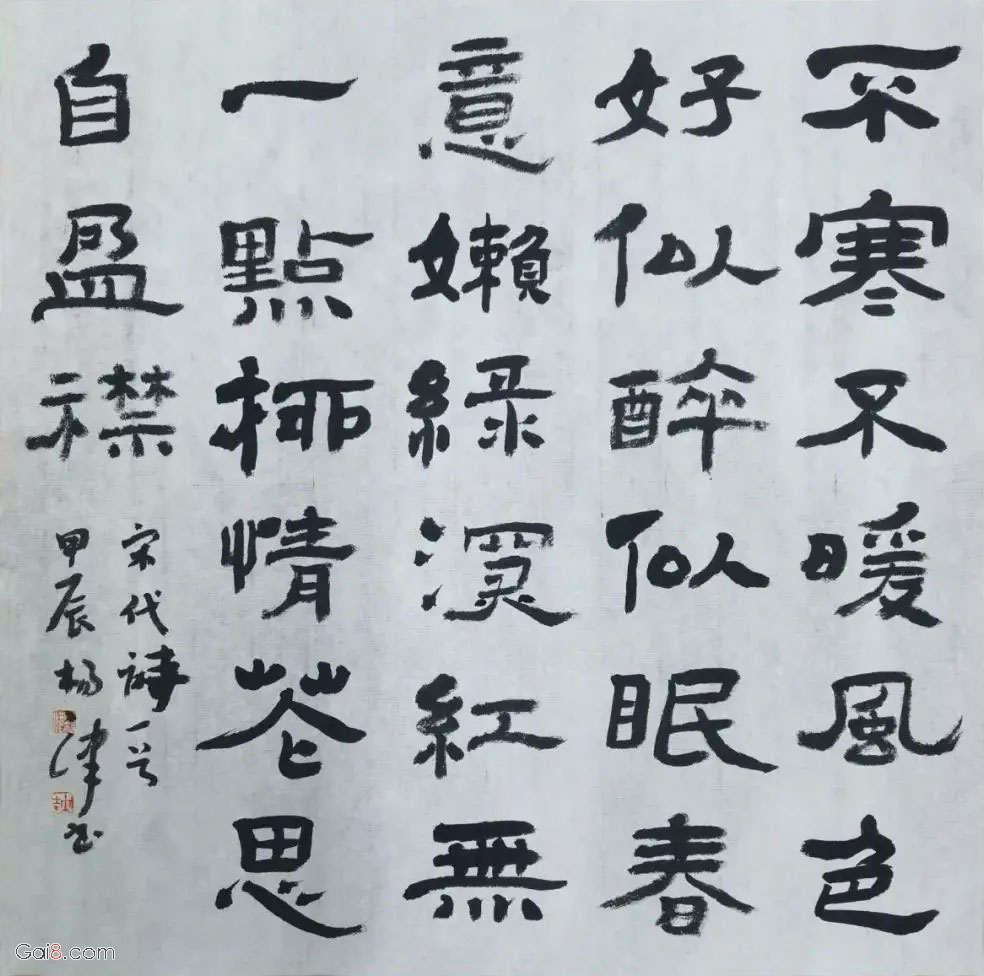 不寒不暖風色
好似醉似眠春
意嬾綠深紅無
一點柳情花思
自盈襟
宋代詩一首
甲辰杨津书
Gai8.com